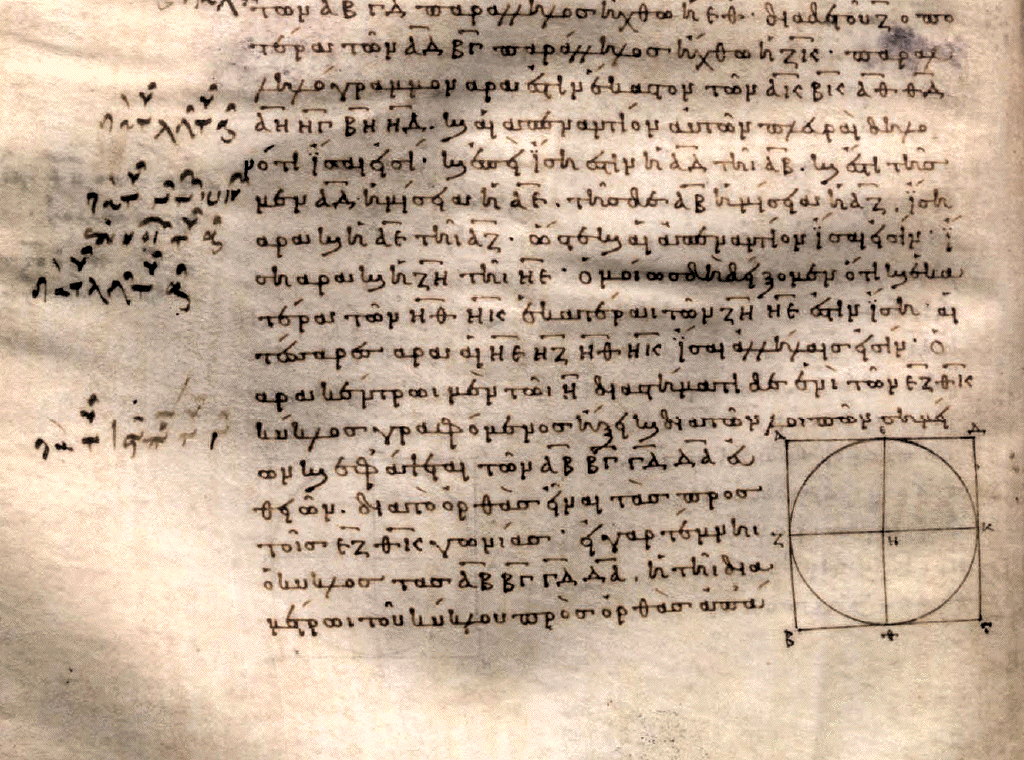 τῶν ΑΒ ΓΔ παράλληλος ἤχθω ἡ ΕΘ· διὰ δὲ τοῦ Ζ ὁπο
τέρα τῶν ΑΔ ΒΓ παράλληλος ἤχθω ἡ ΖΚ· παραλ
ληλόγραμμον ἄρα ἐστὶν ἕκαστον τῶν ΑΚ ΚΒ ΑΘ ΘΔ
ΑΗ ΗΓ ΒΗ ΗΔ· καὶ αἱ ἀπεναντίον αὐτῶν πλευραὶ δηλο
νότι ἴσαι εἰσί· καὶ ἐπεὶ ἴση ἐστὶν ἡ ΑΔ τῆι ΑΒ· καὶ ἐστι τῆς
μὲν ΑΔ ἡμίσεια ἡ ΑΕ· τῆς δὲ ΑΒ ἡμίσεια ἡ ΑΖ· ἴση
ἄρα καὶ ἡ ΑΕ τῆι ΑΖ· ὥστε καὶ αἱ ἀπεναντίον ἴσαι εἰσίν· ἴ
ση ἄρα καὶ ἡ ΖΗ τῆι ΗΕ· ὁμοίως δὴ δείξομεν ὅτι καὶ ἑκα
τέρα τῶν ΗΘ ΗΚ ἑκατέραι τῶν ΖΗ ΗΕ ἐστὶν ἴση· αἱ
τέσσαρες ἄρα αἱ ΗΕ ΗΖ ΗΘ ΗΚ ἴσαι ἀλλήλαις εἰσίν· ὁ
ἄρα κέντρωι μὲν τῶι Η διαστήματι δὲ ἑνὶ τῶν ΕΖΘΚ
κύκλος γραφόμενος ἥξει καὶ διὰ τῶν λοιπῶν σημεί
ων καὶ ἐφάψεται τῶν ΑΒ ΒΓ ΓΔ ΔΑ εὐ
θειῶν· διὰ τὸ ὀρθὰς εἶναι τὰς πρὸς
τοῖς ΕΖΘΚ γωνίας· εἰ γὰρ τέμνει
ὁ κύκλος τὰς ΑΒ ΒΓ ΓΔ ΔΑ· ἡ τῆι δια
μέτρωι τοῦ κύκλου πρὸς ὀρθὰς ἀπ'ἄ
Α Ε Δ
Ζ Η Κ
Β Θ Γ